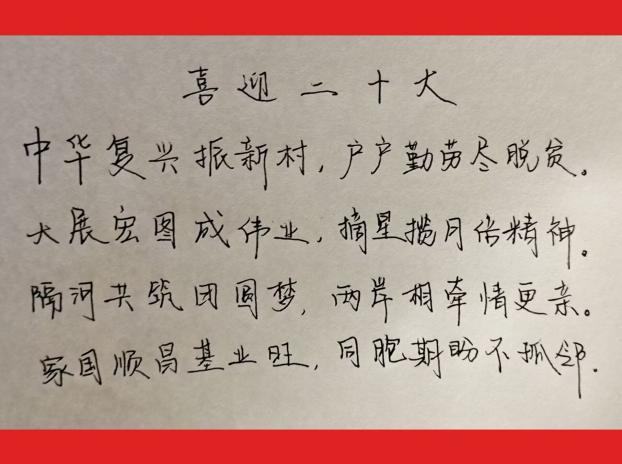 喜迎二十大
中华复兴振新村，户户勤劳尽脱贫。
大展宏图成伟业，摘星揽月倍精神。
隔河共筑团圆梦，两岸相牵情更亲。
家国顺昌基业旺，同胞期盼不孤邻.